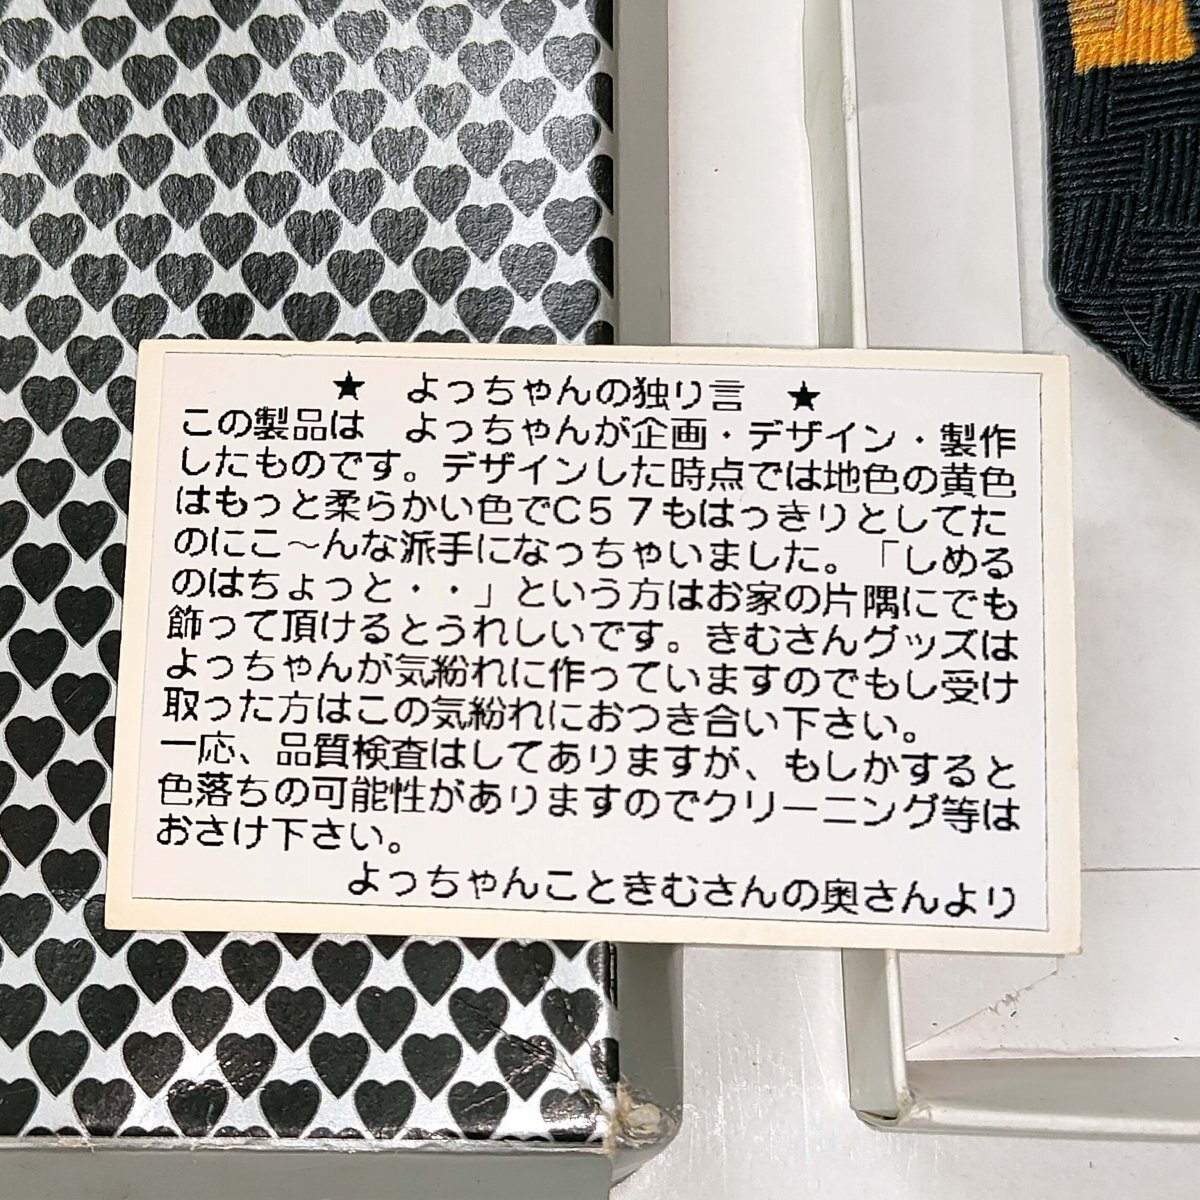 ★ よっちゃんの独り言 ★
この製品は よっちゃんが企画・デザイン・製作
したものです。デザインした時点では地色の黄色
はもっと柔らかい色でC57もはっきりとしてた
のにこ~んな派手になっちゃいました。「しめる
のはちょっと・・」という方はお家の片隅にでも
飾って頂けるとうれしいです。きむさんグッズは
よっちゃんが気紛れに作っていますのでもし受け
取った方はこの気紛れにおつき合い下さい。
一応、品質検査はしてありますが、もしかすると
色落ちの可能性がありますのでクリーニング等は
おさけ下さい。
よっちゃんこときむさんの奥さんより